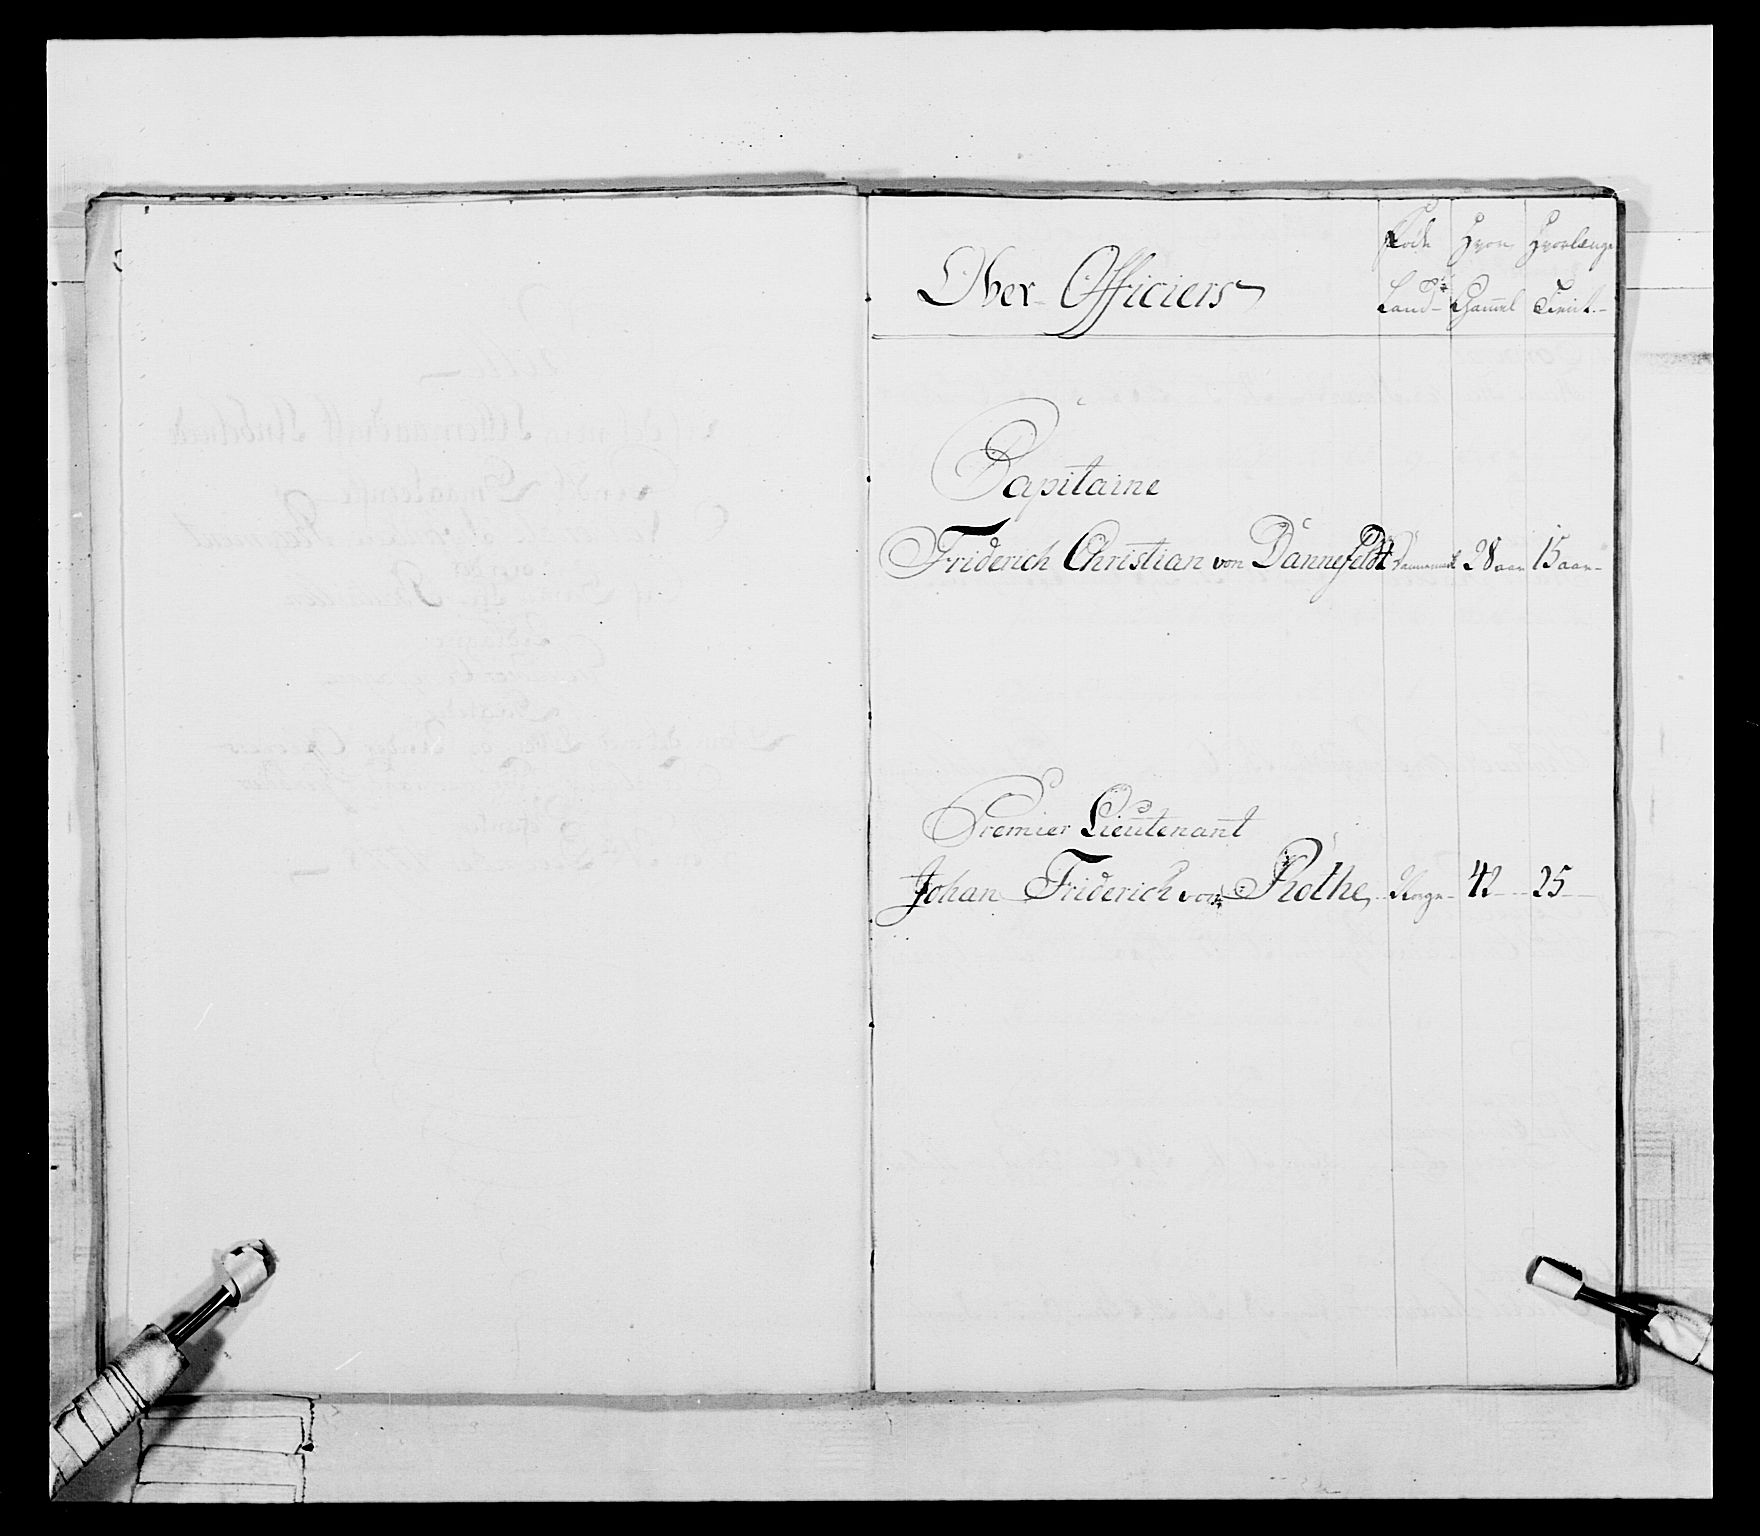 Føde Hvor Hvorlænge
Ober Officiers
Land Gammel Tient
Capitaine
Friderich Christian von Dannefeldt Dannemark 28 aar 15 aar
Premier Lieutenant
Johan Friderich von Rothe Norge 42 25